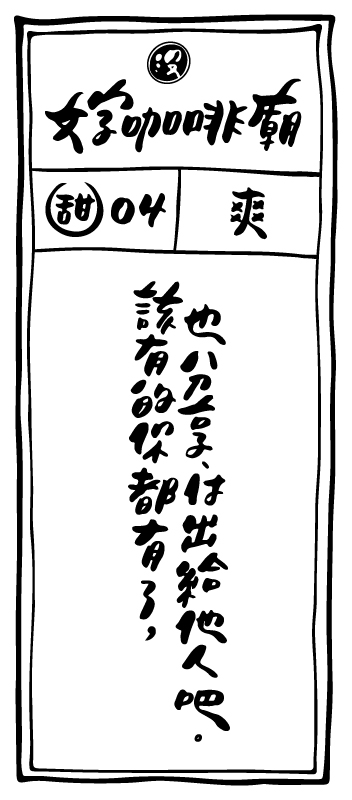 沒
好咖啡廟
甜 04
爽
該有的你都有了，
也分享、付出給他人吧。